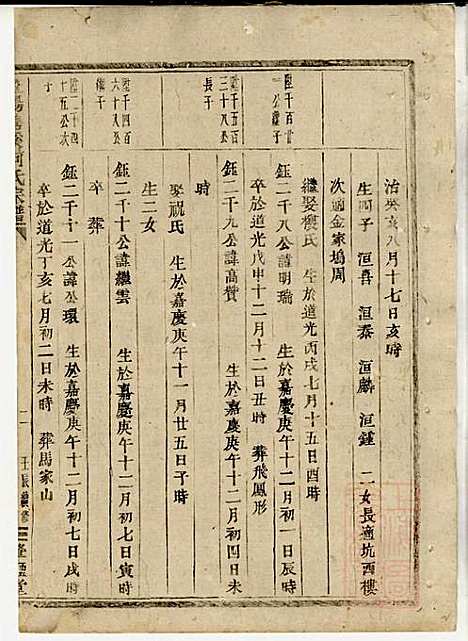 治癸亥八月十七日亥時
生四子 洹喜 洹泰 洹麟 洹鍾 二女長適坑西樓
次適金家塢周
繼娶樓氏 生於道光丙戌七月十五日酉時
陞千百廿
一公繼子
鈺二千八公諱明瑞 生於嘉慶庚午十二月初一日辰時
卒於道光戊申十二月十二日丑時 葬飛鳳形
陞千五百
三十八公
長子
鈺二千九公諱高贊 生於嘉慶庚午十二月初四日未
時
娶祝氏 生於嘉慶庚午十一月廿五日子時
生二女
陞千四百
六十八公
繼子
鈺二千十公諱繼雲 生於嘉慶庚午十二月初七日寅時
卒 葬
陞二千四
十五公次
子
鈺二千十一公諱公環 生於嘉慶庚午十二月初七日戌時
卒於道光丁亥七月初二日未時 葬馬家山
氏宗譜
二